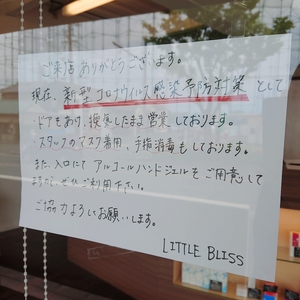 ご来店ありがとうございます。
現在、新型コロナウィルス感染予防対策として
・ドアもあり、換気したまま営業しております。
スタッフのマスク着用、手指消毒もしております。
また、入口にてアルコールハンドジェルもご用意して
ますので、ぜひご利用下さい。
ご協力よろしくお願いします。
LITTLE BLISS